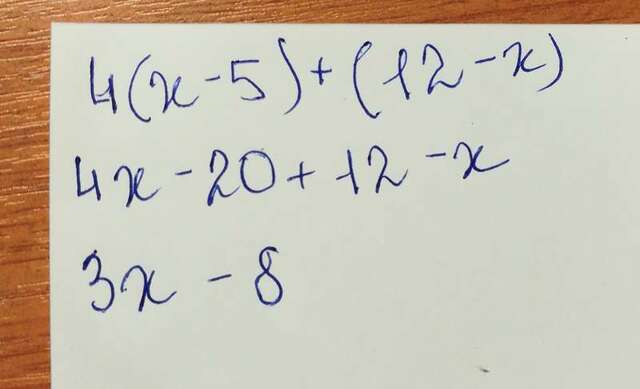 4(x-5)+(12-x)
4x-20+12-x
3x-8